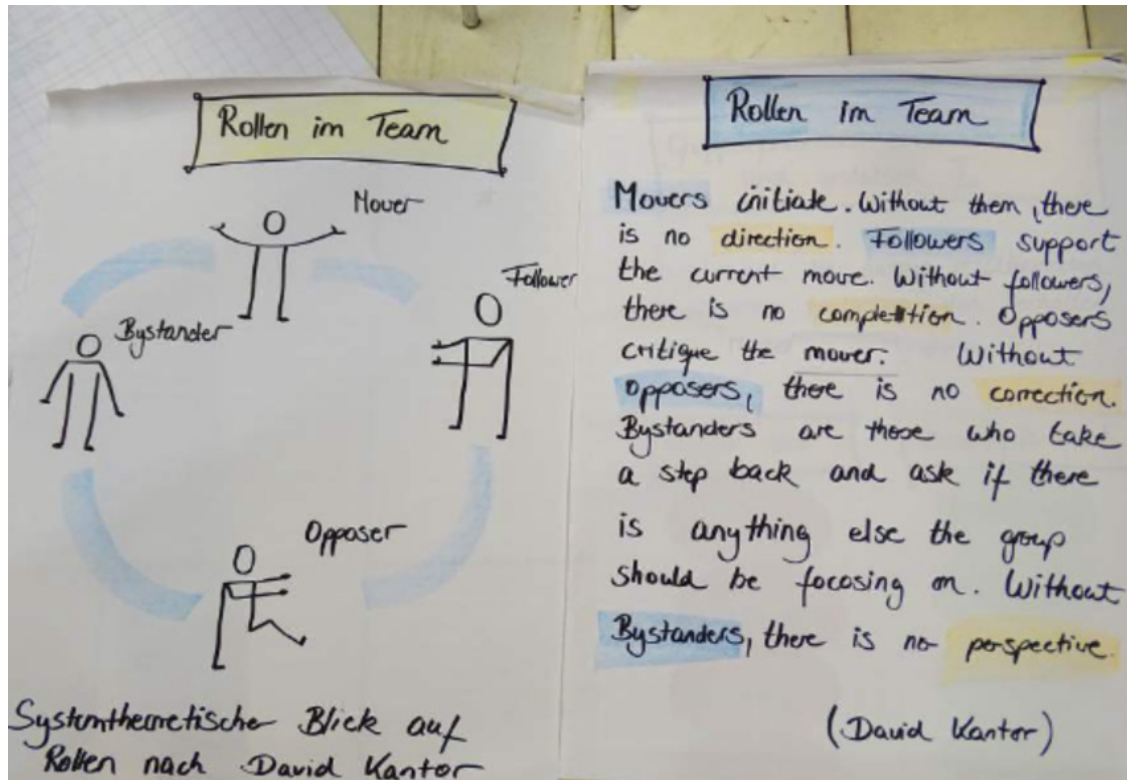 Rollen im Team
Mover
Follower
Bystander
Opposer
Systemtheoretischer Blick auf
Rollen nach David Kantor
Rollen im Team
Movers initiate. Without them, there
is no direction. Followers support
the current move. Without followers,
there is no completion. Opposers
critique the mover. Without
Opposers, there is no correction.
Bystanders are those who take
a step back and ask if there
is anything else the group
should be focosing on. Without
Bystanders, there is no perspective.
(David Kantor)